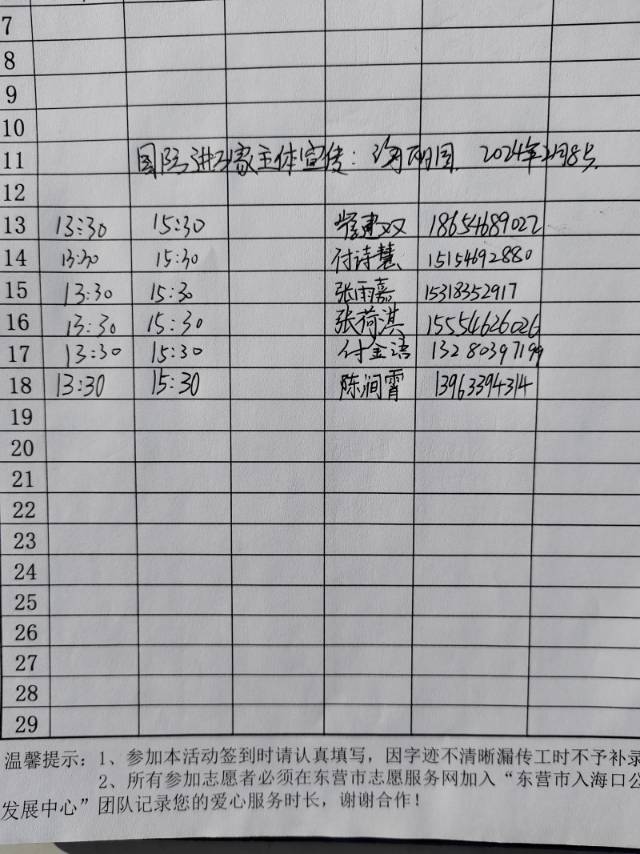 7
8
9
10
11 国际进 家主体宣传: 海 国. 2024年 月8号.
12
13 13:30 15:30 18654689022
14 13:30 15:30 付诗慧 15154692880
15 13:30 15:30 张雨嘉 15318352917
16 13:30 15:30 张荷淇 15554626026
17 13:30 15:30 付金 13280397199
18 13:30 15:30 陈涧霄 13963394314
19
20
21
22
23
24
25
26
27
28
29
温馨提示: 1、参加本活动签到时请认真填写,因字迹不清晰漏传工时不予补录
2、所有参加志愿者必须在东营市志愿服务网加入“东营市入海口公
发展中心”团队记录您的爱心服务时长,谢谢合作!